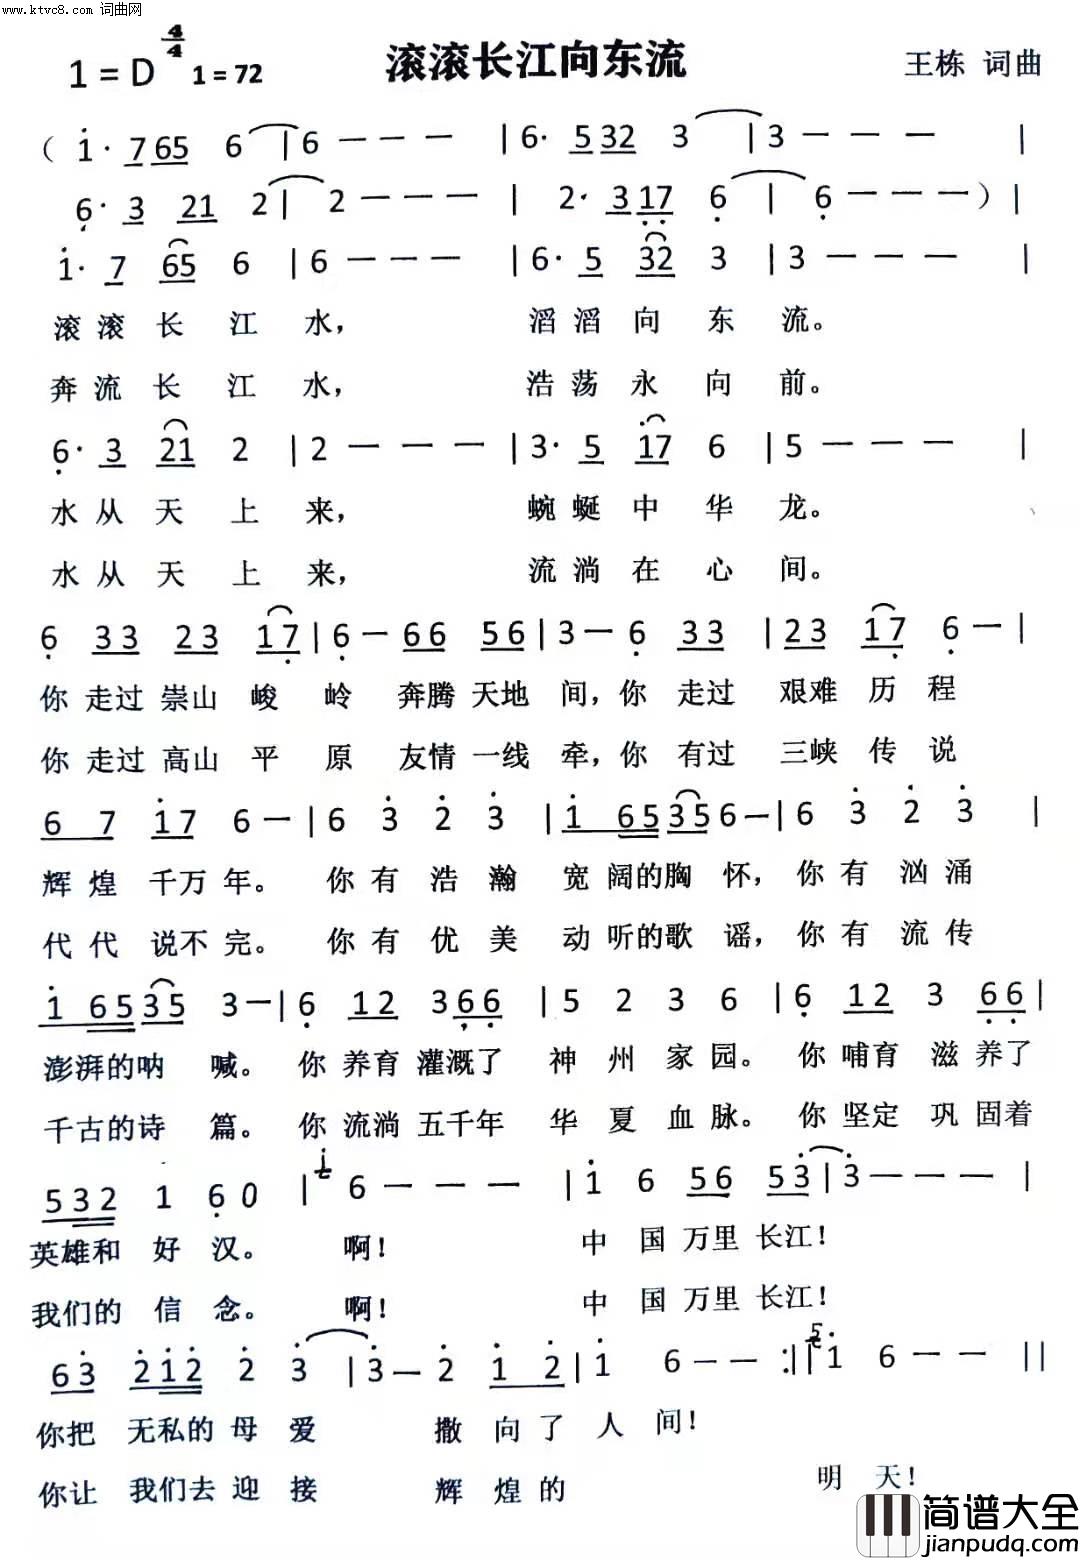 www.ktvc8.com 词曲网
1=D 4/4 1=72 滚滚长江向东流 王栋 词曲
( 1· 7 65 6 | 6 — — — | 6· 5 32 3 | 3 — — — |
6· 3 21 2 | 2 — — — | 2· 3 17 6 | 6 — — — ) |
1· 7 65 6 | 6 — — — | 6· 5 32 3 | 3 — — — |
滚 滚 长 江 水， 滔 滔 向 东 流。
奔 流 长 江 水， 浩 荡 永 向 前。
6· 3 21 2 | 2 — — — | 3· 5 17 6 | 5 — — — |
水 从 天 上 来， 蜿 蜒 中 华 龙。
水 从 天 上 来， 流 淌 在 心 间。
6 33 23 17 | 6 — 66 56 | 3 — 6 33 | 23 17 6 — |
你 走过 崇山 峻 岭 奔腾 天地 间，你 走过 艰难 历 程
你 走过 高山 平 原 友情 一线 牵，你 有过 三峡 传 说
6 7 17 6 — | 6 3 2 3 | 1 65 35 6 — | 6 3 2 3 |
辉 煌 千万 年。 你 有 浩 瀚 宽 阔的胸 怀， 你 有 汹 涌
代 代 说不 完。 你 有 优 美 动 听的歌 谣， 你 有 流 传
1 65 35 3 — | 6 12 3 66 | 5 2 3 6 | 6 12 3 66 |
澎湃的呐 喊。 你 养育 灌溉了 神 州 家 园。 你 哺育 滋 养了
千古的诗 篇。 你 流淌 五千年 华 夏 血 脉。 你 坚定 巩 固着
532 1 6 0 | i 6 — — — | 1 6 56 53 | 3 — — — |
英雄和 好 汉。 啊！ 中 国 万里 长江！
我们的 信 念。 啊！ 中 国 万里 长江！
63 212 2 3 | 3 — 2 1 2 | 1 6 — — :|| 5 1 6 — — ||
你把 无私的 母 爱 撒 向 了 人 间！
你让 我们去 迎 接 辉 煌 的 明 天！
简谱大全
jianpudq.com